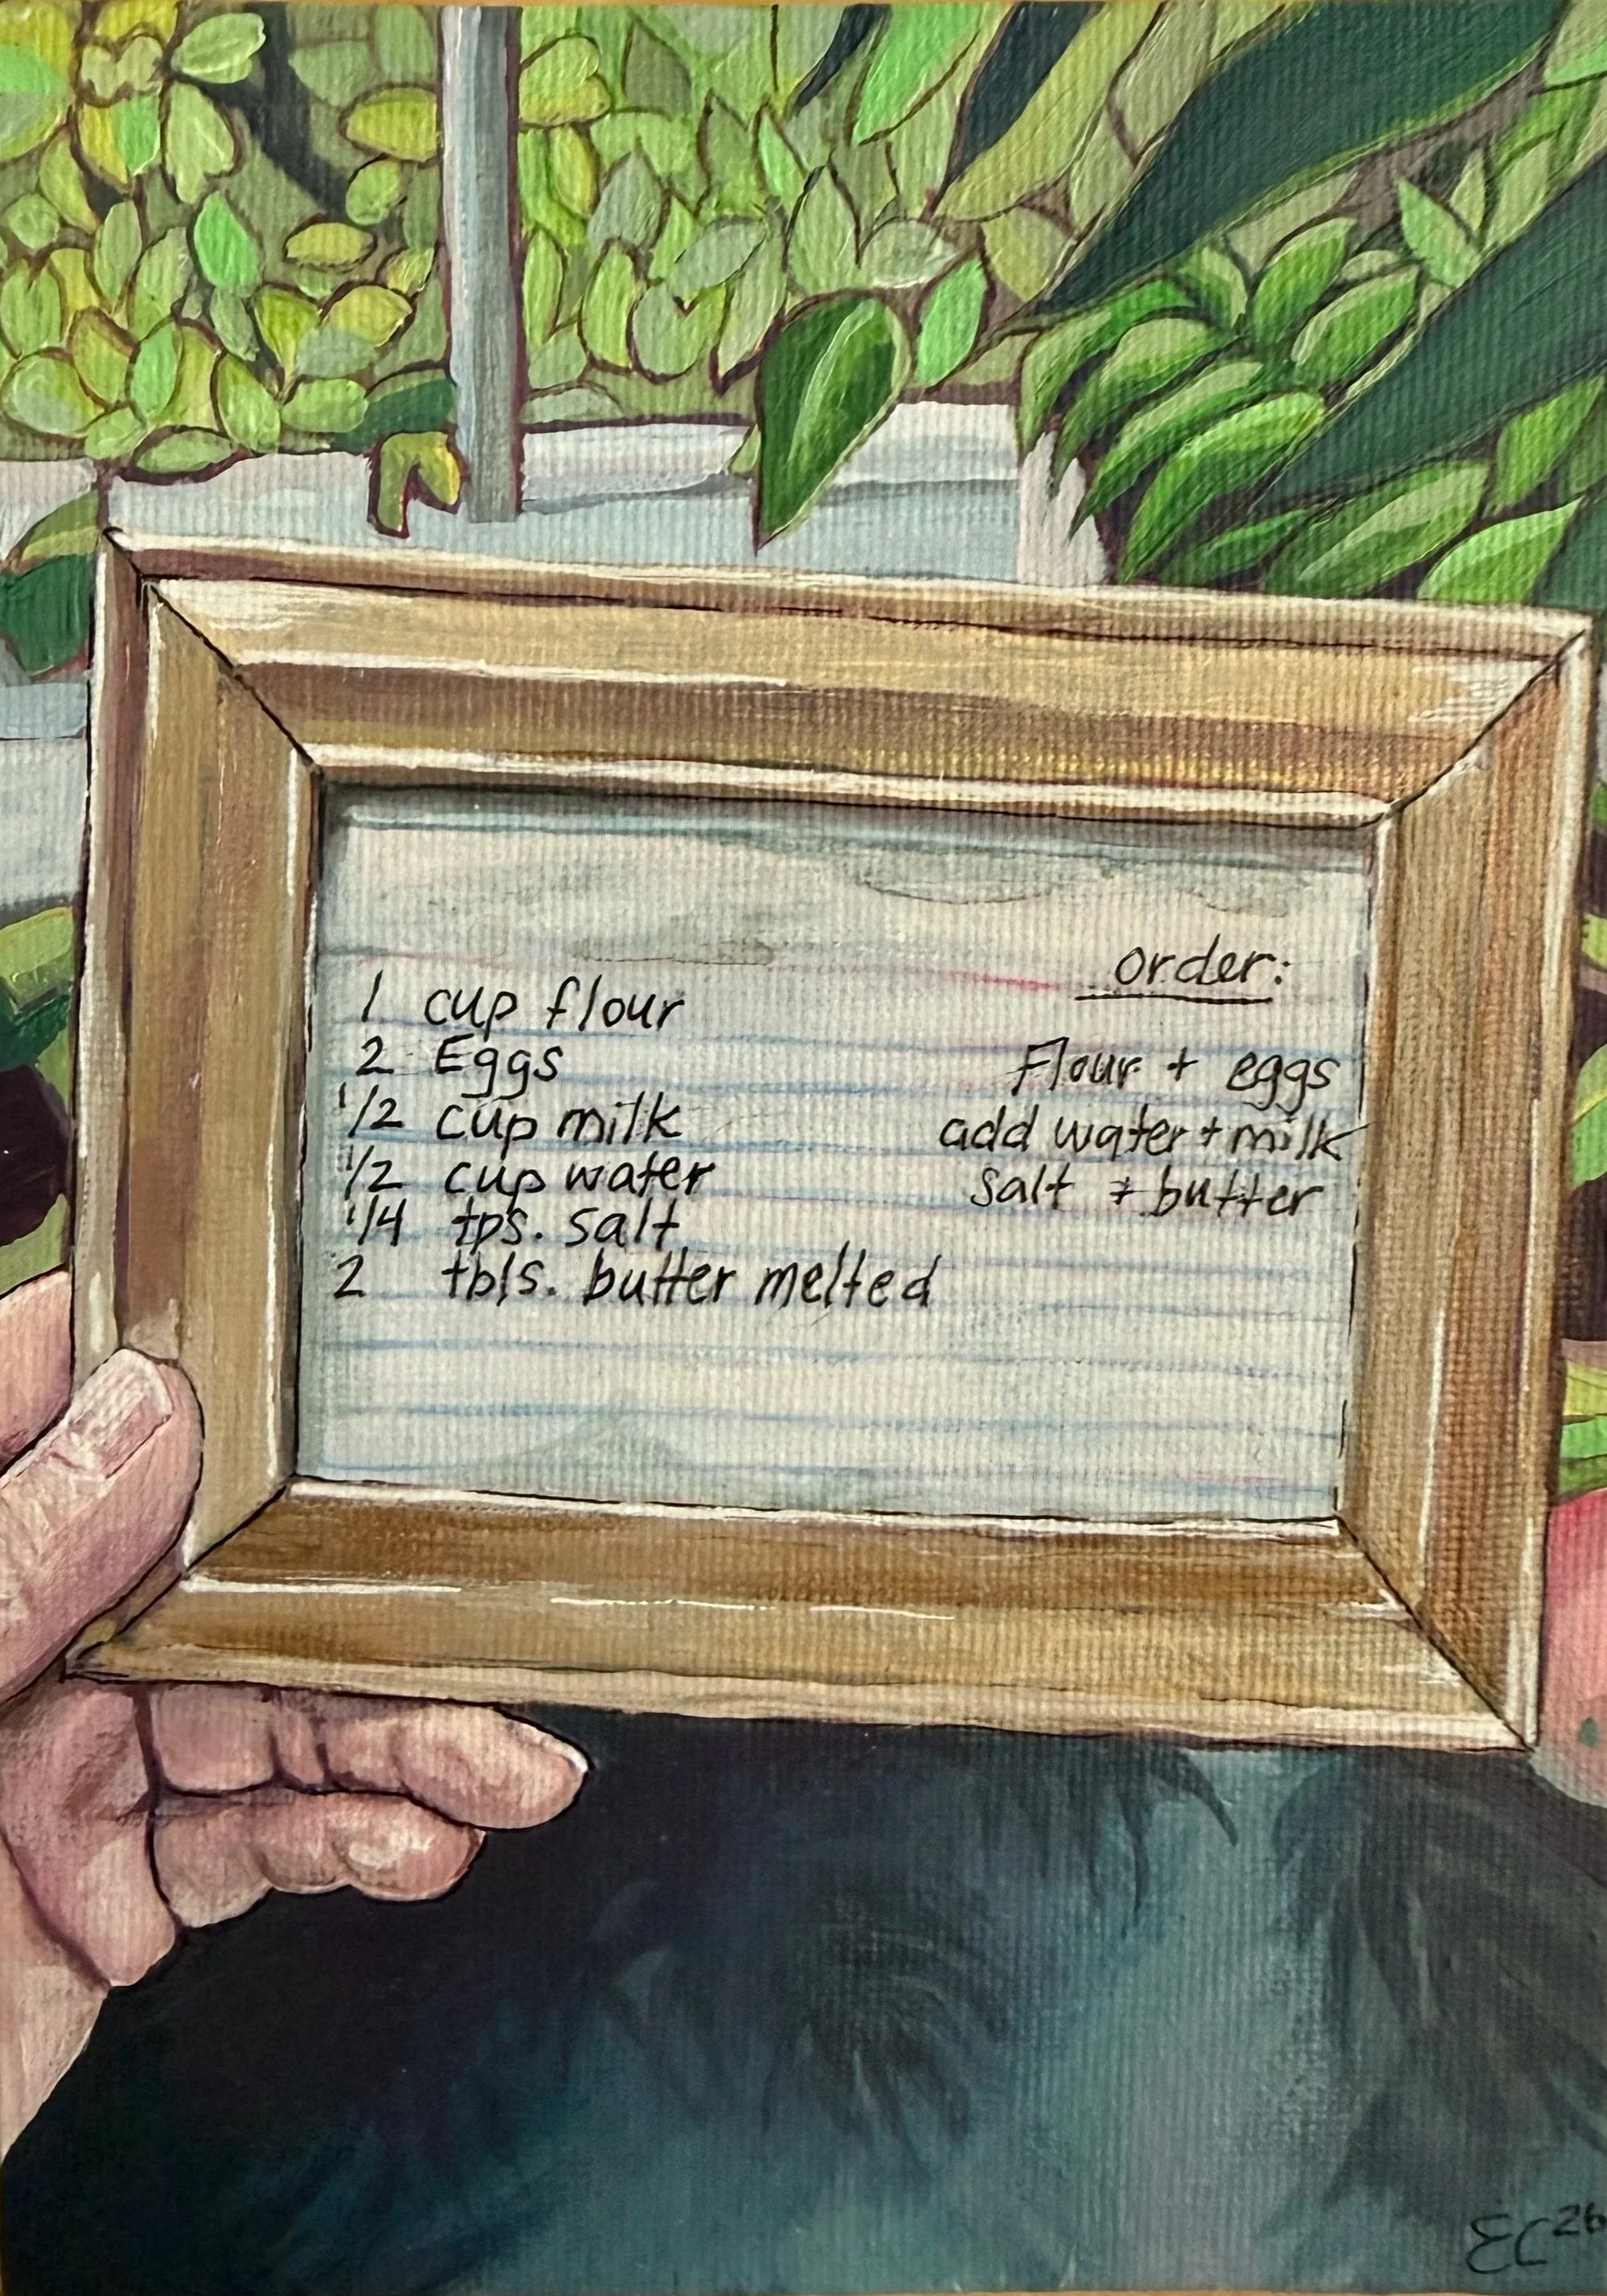 1 cup flour
2 Eggs
1/2 cup milk
1/2 cup water
1/4 tps. salt
2 tbls. butter melted
order:
Flour + eggs
add water + milk
salt + butter
EC 26